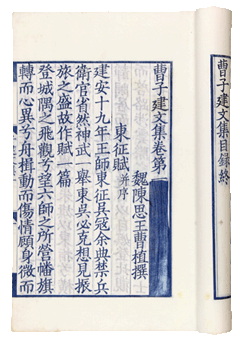 曹子建文集目録終
曹子建文集卷第一
魏陳思王曹植撰
東征賦并序
建安十九年王師東征吳寇余典禁兵
衛官省然神武一舉東吳必克想見振
旅之盛故作賦一篇
登城隅之飛觀兮望六師之所營幡旗
轉而心異兮舟楫動而傷情顧身微而